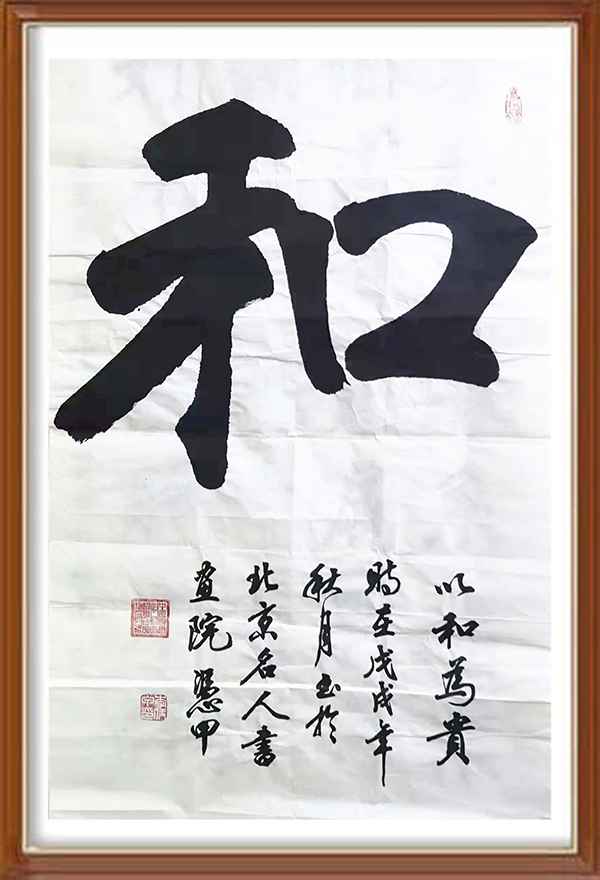 和
以和為貴
時在戊戌年
秋月书於
北京名人書
畫院 憑甲